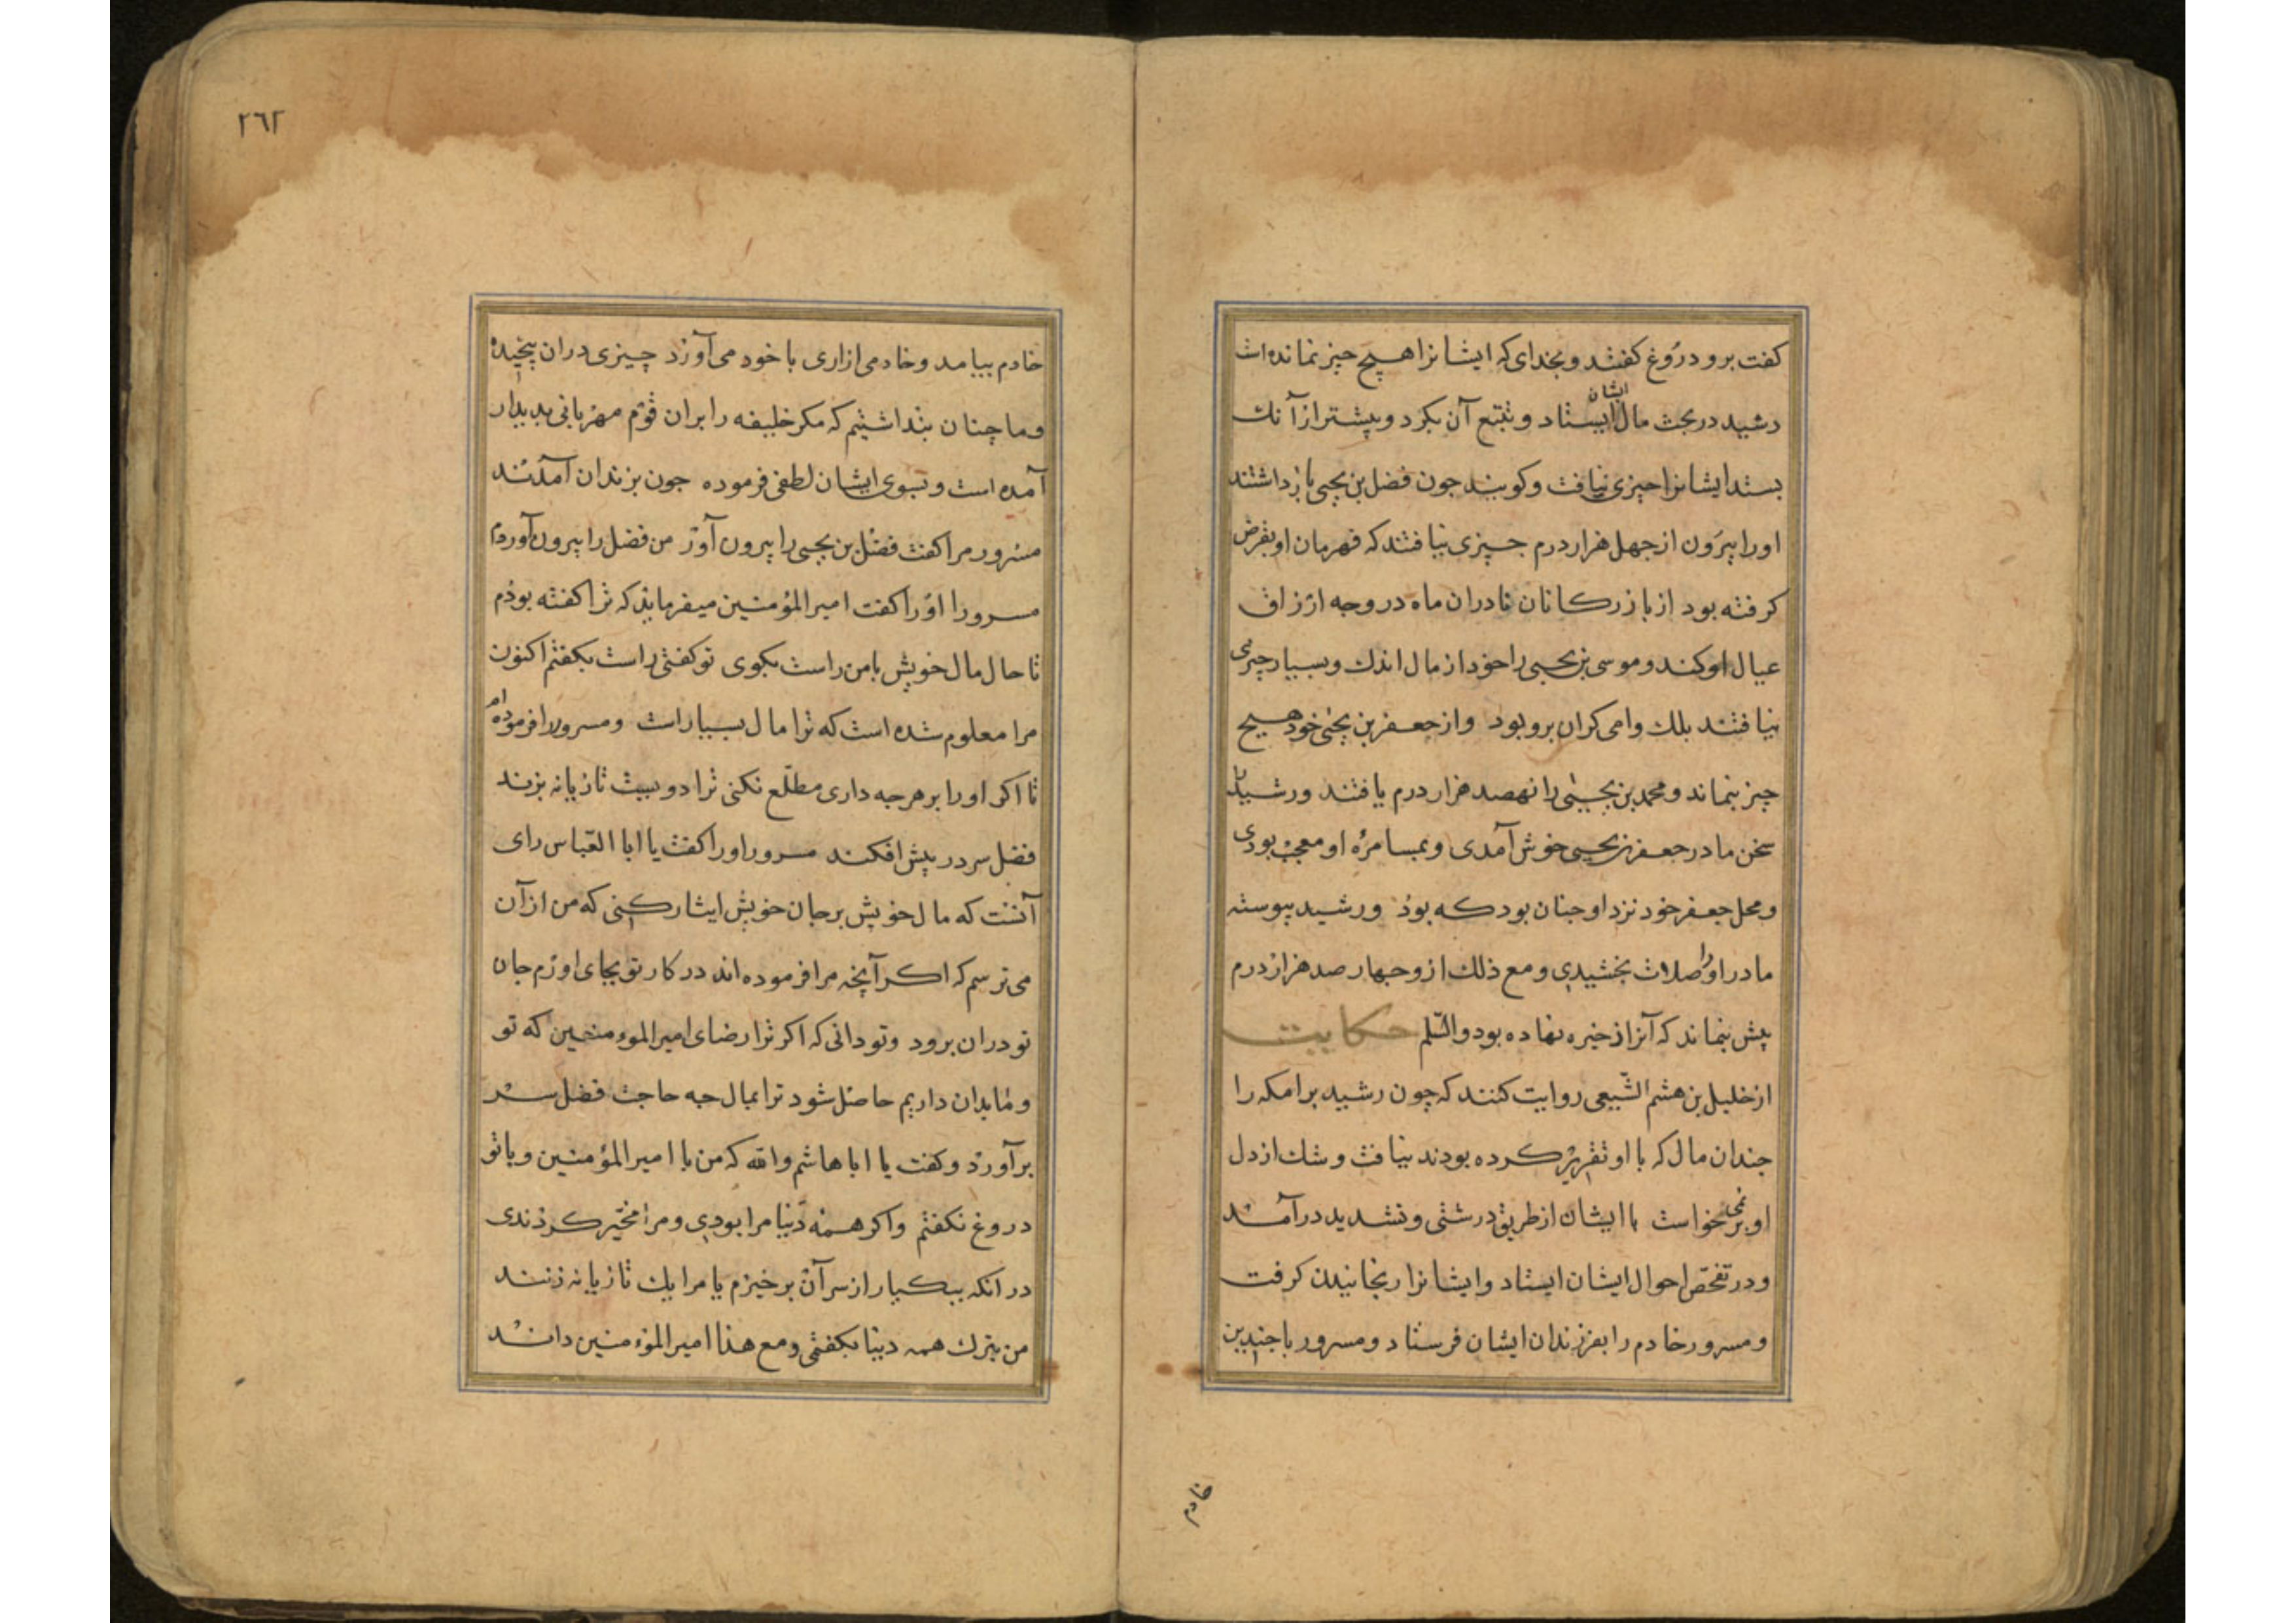 کفت برو دروغ کفتند و بخدای که ایشانرا هیچ چیز نمانده است
رشید در بحث مال ایشان ایستاد و تتبع آن بکرد و بیشتر از آنک
بستد ایشانرا چیزی نیافت و کویند جون فضل بن یحیی بازداشتند
اورا بیرون از جهل هزار درم جیزی نیافتند که قهرمان او بقرض
کرفته بود از بازرکانان تا دران ماه در وجه ارزاق
عیال او کند و موسی بن یحیی را خود از مال اندك و بسیار چیزی
نیافتند بلك وامی کران برو بود و از جعفر بن یحیی خود هیچ
چیز نماند و محمد بن یحیی را نهصد هزار درم یافتند و رشید را
سخن مادر جعفر بن یحیی خوش آمدی و بمسامرهٔ او معجب بودی
و محل جعفر خود نزد او جنان بود که بوذ و رشید پیوسته
مادر او را صلات بخشیدی و مع ذلك ازو جهار صد هزار درم
بیش نماند که آنرا ذخیره نهاده بود والسّلم حکایت
از خلیل بن هشم الشّیعی روایت کنند که چون رشید برامکه را
جندان مال که با او تقریر کرده بودند نیافت و شك از دل
او بر نمی خواست با ایشان از طریق درشتی و تشدید درآمد
و در تفحّص احوال ایشان ایستاد و ایشانرا رنجانیدن کرفت
و مسرور خادم را بفرزندان ایشان فرستاد و مسرور با جندین
خادم
۲۶۲
خادم بیامد و خادمی ازاری با خود می آورد چیزی دران پیچیده
و ما چنان بنداشتیم که مکر خلیفه را بران قوم مهربانی بدیدار
آمده است و بسوی ایشان لطفی فرموده جون بزندان آمدند
مسرور مرا کفت فضل بن یحیی را بیرون آور من فضل را بیرون آوردم
مسرور او را کفت امیر المؤمنین میفرماید که ترا کفته بوذم
تا حال مال خویش با من راست بکوی تو کفتی راست بکفتم اکنون
مرا معلوم شده است که ترا مال بسیار است و مسرور را فرموده ام
تا اکر او را بر هرجه داری مطلّع نکنی ترا دویست تازیانه بزند
فضل سر در پیش افکند مسرور او را کفت یا ابا العبّاس رای
آنست که مال خویش بر جان خویش ایثار نکنی که من از آن
می ترسم که اکر آنچه مرا فرموده اند در کار تو بجای اورم جان
تو دران برود و تو دانی که اکر ترا رضای امیر الموءمنین که تو
و ما بدان داریم حاصل شود ترا بمال جه حاجت فضل سر
برآورد و کفت یا ابا هاشم والله که من با امیر المؤمنین و با تو
دروغ نکفتم و اکر همه دنیا مرا بودی و مرا مخیّر کردندی
در انکه بیکبار از سر آن برخیزم یا مرا یك تازیانه زنند
من بترك همه دنیا بکفتمی و مع هذا امیر المؤمنین داند